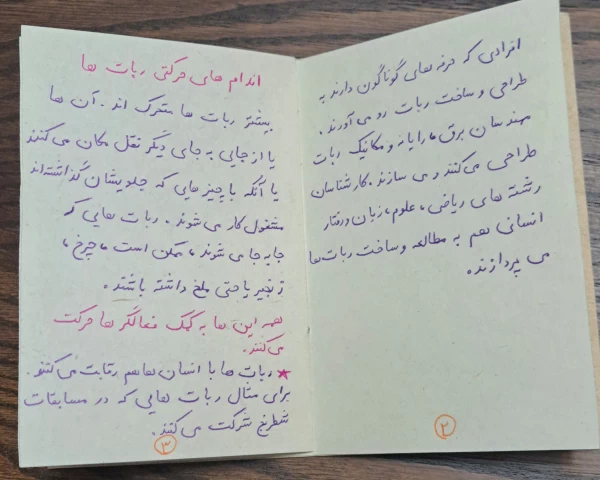 افرادی که حرفه های گوناگون دارند به
طراحی و ساخت ربات رو می آورند.
مهندسان برق، رایانه و مکانیک ربات
طراحی می کنند و می سازند. کارشناسان
رشته های ریاضی، علوم، زبان و رفتار
انسانی هم به مطالعه و ساخت ربات ها
می پردازند.
۲
اندام های حرکتی ربات ها
بیشتر ربات ها متحرک اند. آن ها
یا از جایی به جای دیگر نقل مکان می کنند
یا آنکه با چیز هایی که جلویشان گذاشته اند
مشغول کار می شوند. ربات هایی که
جابه جا می شوند، ممکن است، چرخ،
زنجیر یا حتی ملخ داشته باشند.
همه این ها به کمک فعالگر ها حرکت
می کنند.
★ ربات ها با انسان ها هم رقابت می کنند.
برای مثال ربات هایی که در مسابقات
شطرنج شرکت می کنند.
۳